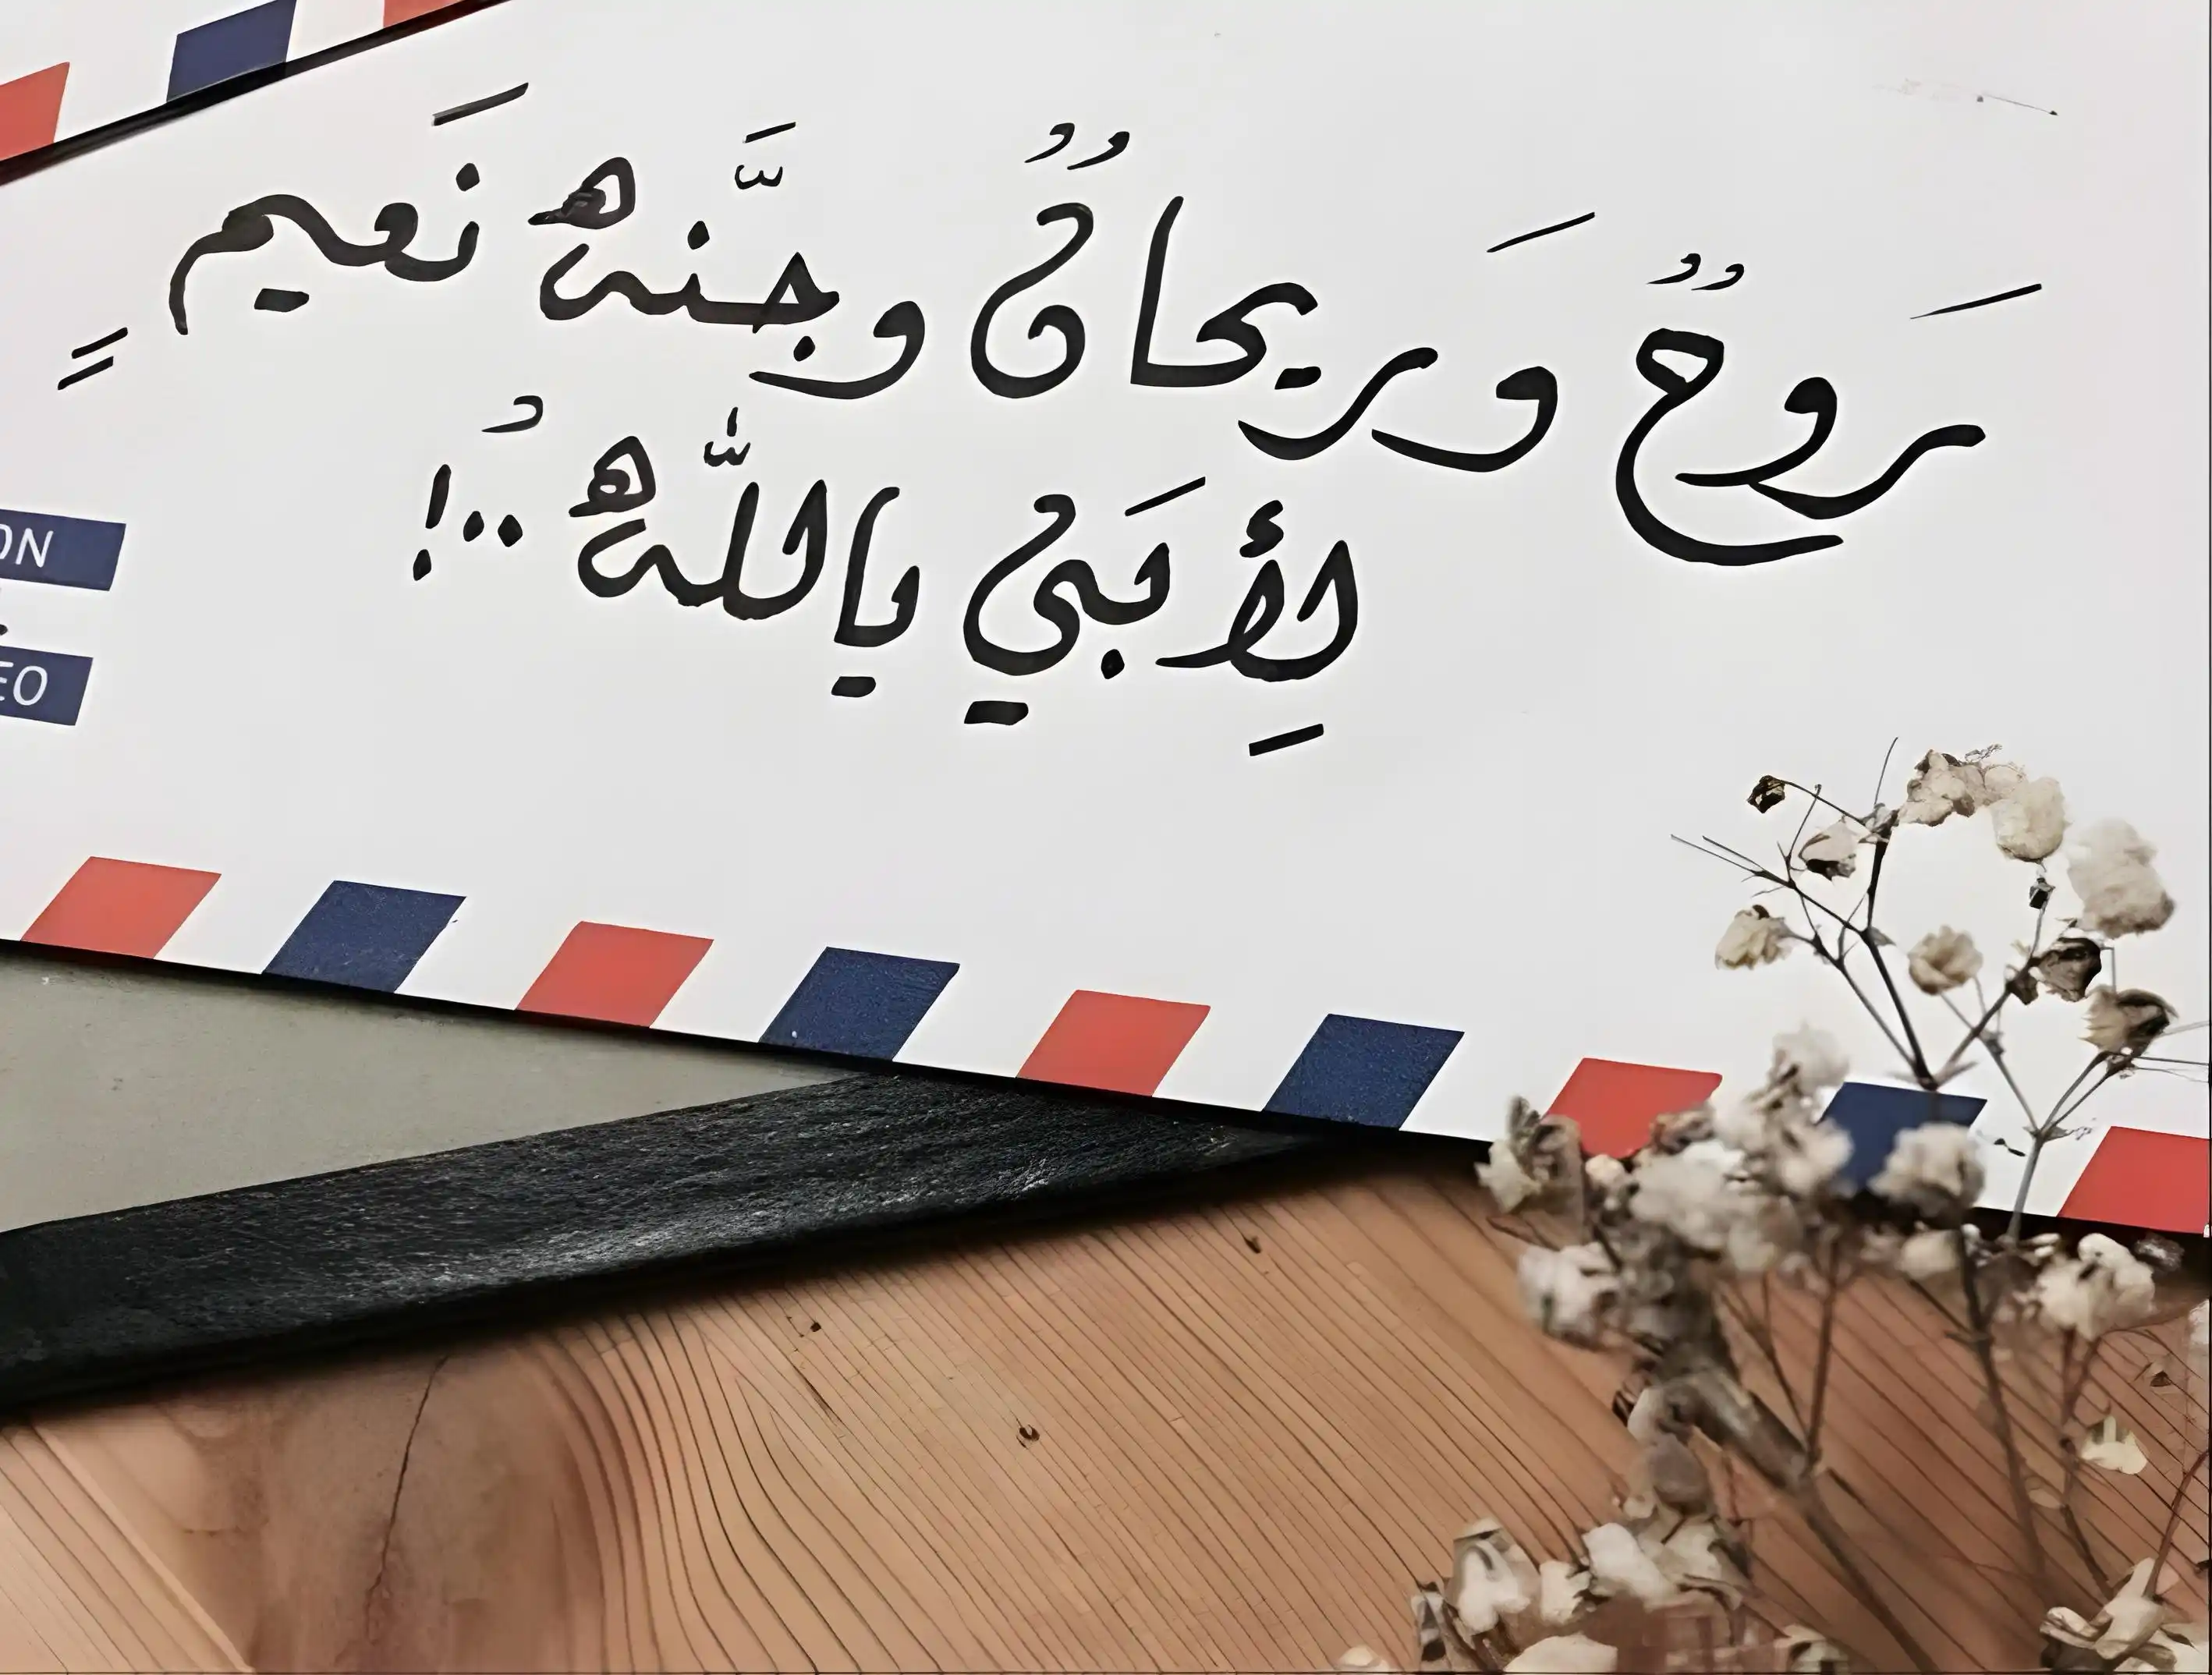 رَوحٌ وَريحانٌ وجنَّهْ نَعيمٍ
لِأبَيْ ياللّهُ ..!
ON
EO